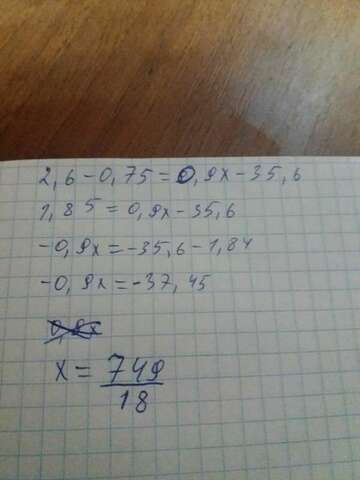 2,6-0,75=0,9x-35,6
1,85=0,9x-35,6
-0,9x=-35,6-1,84
-0,9x=-37,45
0,9x
x=749/18